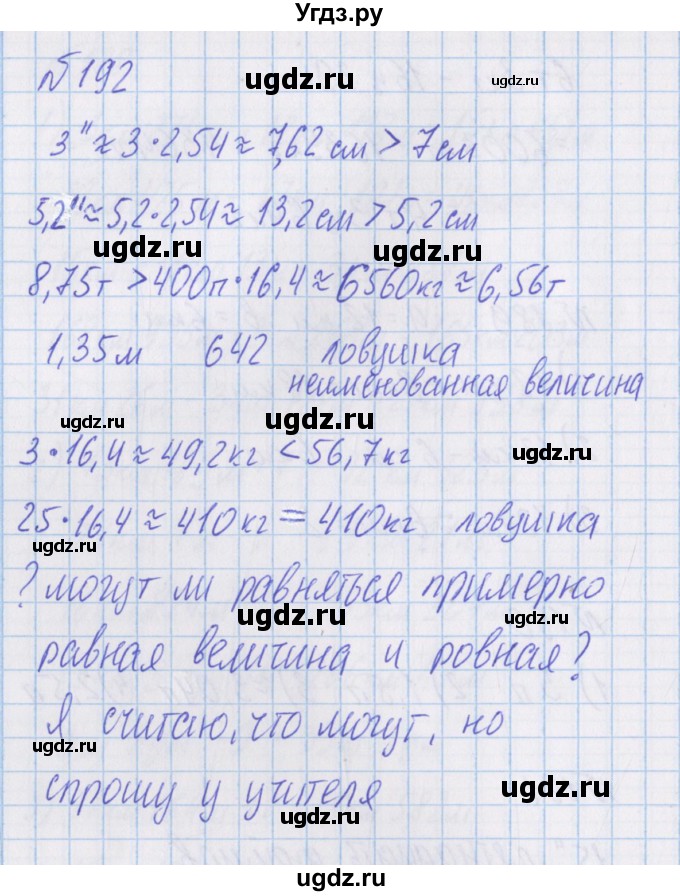 Угдз.ру
№192
ugdz.ru ugdz.ru
3" ≈ 3·2,54 ≈ 7,62 см > 7 см
5,2" ≈ 5,2·2,54 ≈ 13,2 см > 5,2 см
ugdz.ru ugdz.ru
8,75т > 400п·16,4 ≈ 6560кг ≈ 6,56т
1,35м 642 ловушка
неименованная величина
ugdz.ru ugdz.ru
3·16,4 ≈ 49,2кг < 56,7кг ugdz.ru
25·16,4 ≈ 410кг = 410кг ловушка
ugdz.ru
? могут ли равняться примерно
ugdz.ru ugdz.ru
равная величина и ровная?
Я считаю, что могут, но
ugdz.ru ugdz.ru
спрошу у учителя ugdz.ru
ugdz.ru
ugdz.ru